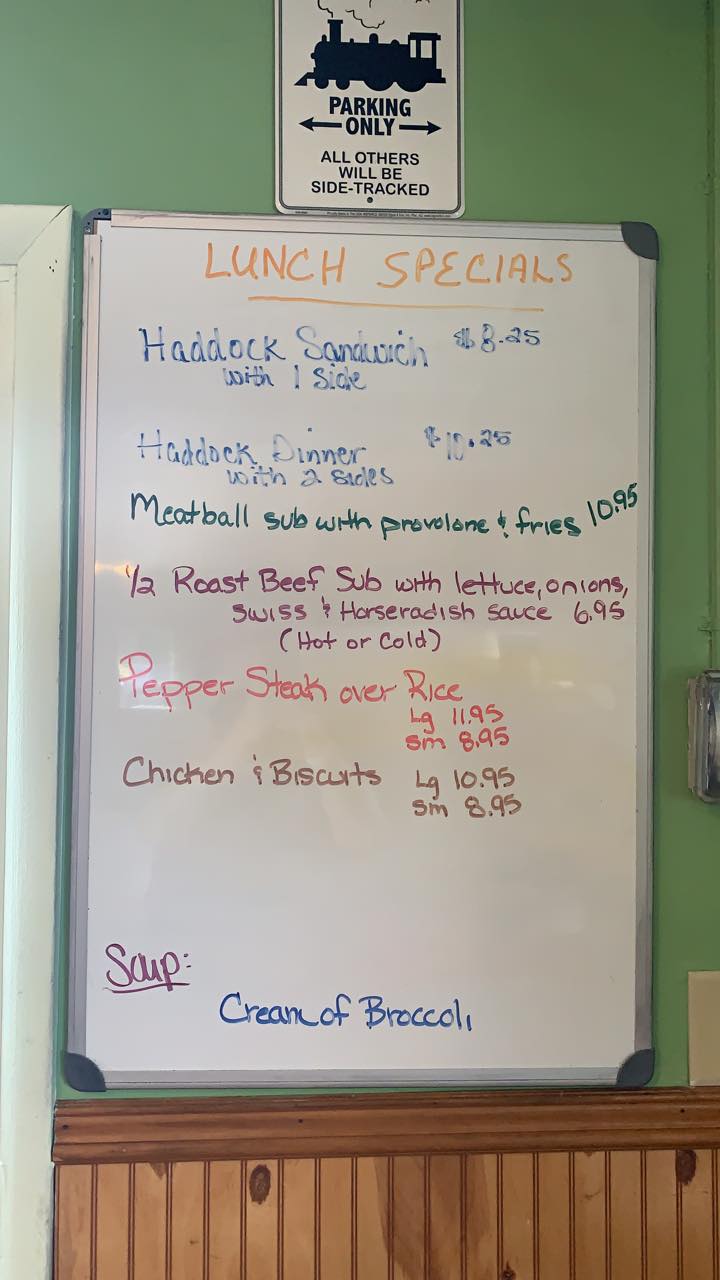 PARKING
ONLY
ALL OTHERS
WILL BE
SIDE-TRACKED
LUNCH SPECIALS
Haddock Sandwich $8.25
with 1 side
Haddock Dinner $10.25
with 2 sides
Meatball sub with provolone & fries 10.95
1/2 Roast Beef Sub with lettuce, onions,
swiss & Horseradish sauce 6.95
(Hot or Cold)
Pepper Steak over Rice
Lg 11.95
sm 8.95
Chicken & Biscuits Lg 10.95
sm 8.95
Soup:
Cream of Broccoli